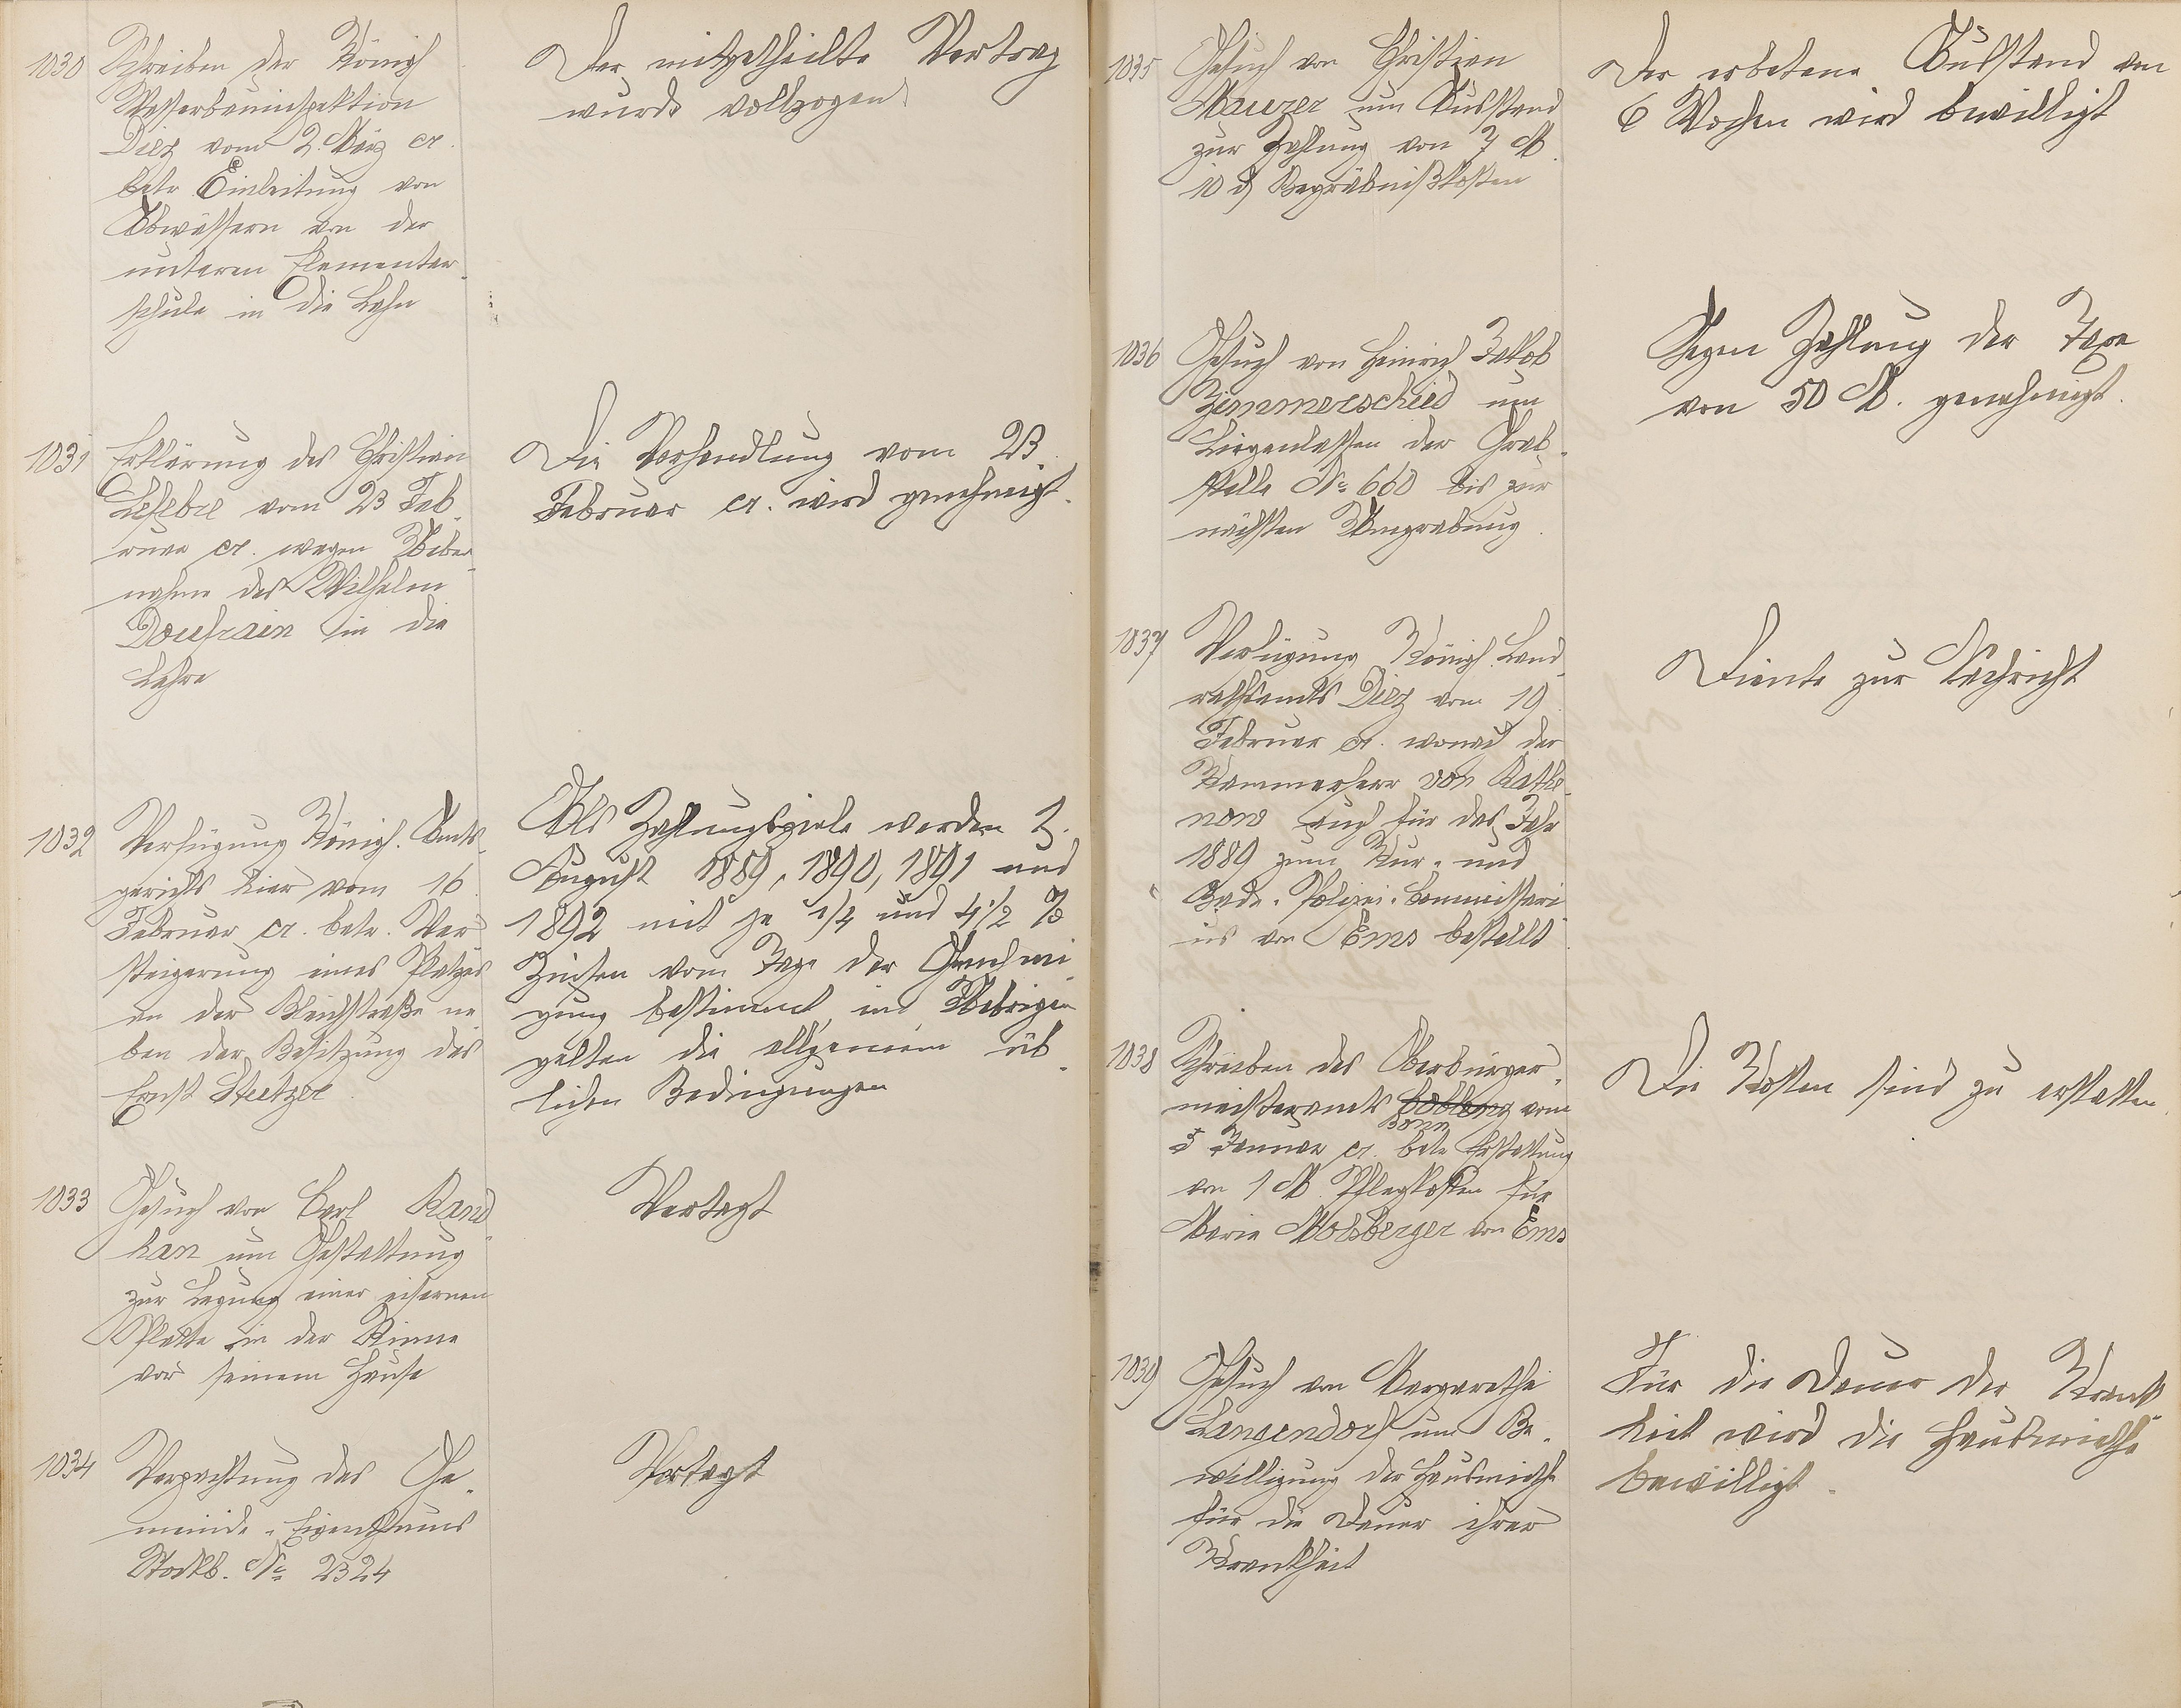 1030
Schreiben der Königl
Wasserbauinspektion
Diez vom 2. März cr.
betr Einleitung von
Abwässern von der
unteren Elementar-
schule in die Lahn
Der mitgetheilte Vertrag
wurde vollzogen
1031
Erklärung des Christian
Lefebre vom 23 Feb-
ruar cr. wegen Ueber-
nahme des Wilhelm
in die
Lehre
Die Verhandlung vom 23.
Februar cr. wird genehmigt.
1032
Verfügung Königl. Amts-
gerichts hier vom 16.
Februar cr. betr. Ver-
steigerung eines Platzes
an der Bleichstraße ne
ben der Besitzung des
Ernst
Als Zahlungsziele werden 2.
August 1889, 1890, 1891 und
1892 mit je 1/4 und 4 1/2 %
Zinsen vom Tage der Genehmi-
gung bestimmt, im Uebrigen
gelten die allgemein üb-
lichen Bedingungen
1033
Gesuch von Carl Rand-
han um Gestattung
zur Legung einer eisernen
Platte in der Rinne
vor seinem Hause
Vertagt
1034
Verpachtung des Ge-
meinde-Eigenthums
Stockb. No 2324
Vertagt
1035
Gesuch von Christian
Maurer um Ausstand
zur Zahlung von 7 M.
10 d Begräbnißkosten
Der erbetene Ausstand von
6 Wochen wird bewilligt
1036
Gesuch von Heinrich Jakob
Zimmerschied um
Liegenlassen der Grab-
stelle No 660 bis zur
nächsten Umgrabung.
Gegen Zahlung der Taxe
von 50 M. genehmigt.
1037
Verfügung Königl. Land
rathsamts Diez vom 19.
Februar cr. wonach der
Kammerherr von Rathe-
now auch für das Jahr
1889 zum Kur- und
Bade-Polizei-Commissari
us von Ems bestellt
Diente zur Nachricht
1038
Schreiben des Oberbürger-
meisteramts Coblenz vom
Bonn
5 Januar cr. betr Erstattung
von 1 M. Pflegkosten für
Maria Molsberger von Ems
Die Kosten sind zu erstatten.
1039
Gesuch von Margarethe
Langendorf um Be-
willigung der Hausmiethe
für die Dauer ihrer
Krankheit
Für die Dauer der Krank-
heit wird die Hausmiethe
bewilligt.